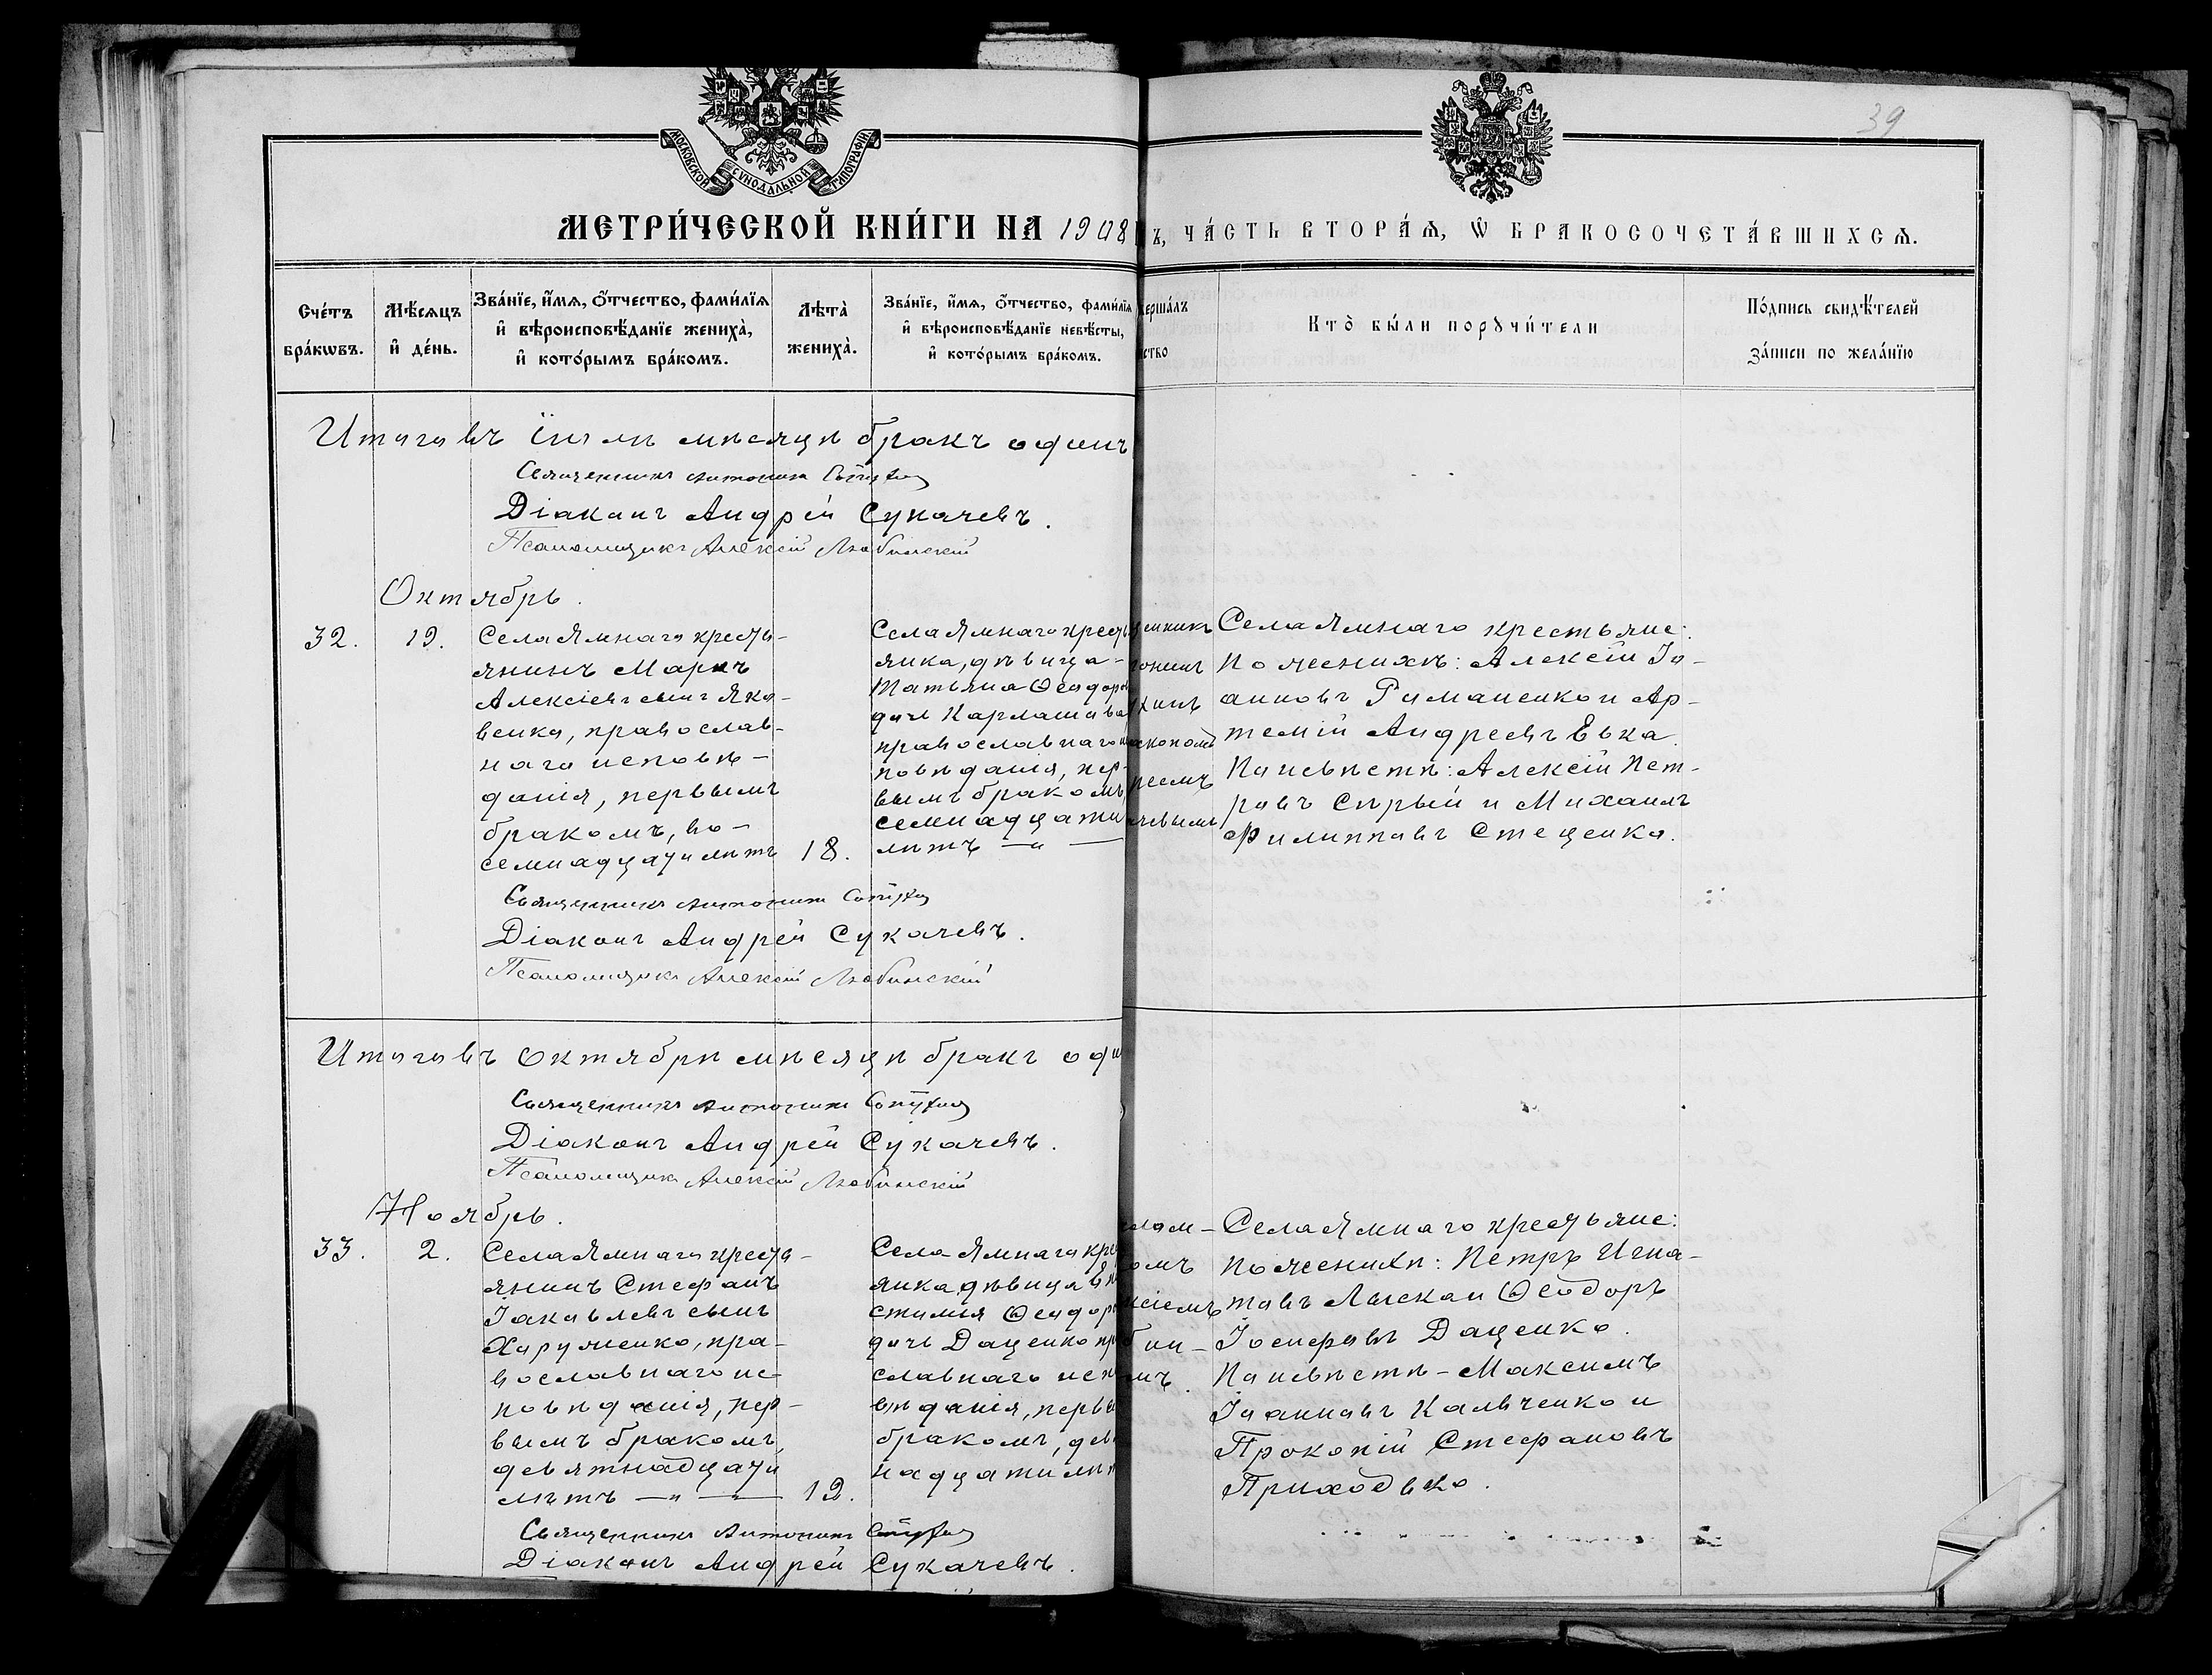 39
МОСКОВСКОЙ СУНОДАЛЬНОЙ ТИПОГРАФІИ
МЕТРИ́ЧЕСКОЙ КНИ́ГИ НА 1908
Ъ, ЧА́СТЬ ВТОРА́Ѧ, Ѿ БРАКОСОЧЕТА́ВШИХСѦ.
Сче́тъ бра́кѡвъ.
Мѣ́сѧцъ и де́нь.
Зва́нїе, и́мѧ, ѻ́тчество, фами́лїѧ и вѣроисповѣ́данїе жениха̀, и кото́рымъ бра́комъ.
Лѣта̀ жениха̀.
Зва́нїе, и́мѧ, ѻ́тчество, фами́лїѧ и вѣроисповѣ́данїе невѣ́сты, и кото́рымъ бра́комъ.
ерша́лъ
ство
Кто̀ бы́ли порꙋчи́тели
По́дпись свидѣ́телей за́писи по жела́нїю
Итого въ Іюлѣ мѣсяцѣ бракъ одинъ
Священникъ Антонин
Діаконъ Андрей Сукачевъ.
Псаломщикъ Алексій Любинскій
Октябрь.
32.
19.
Села Ямнаго кресть-
янинъ Маркъ
Алексіевъ сынъ Яко-
венко, православ-
наго исповѣ-
данія, первымъ
бракомъ, во-
семнадцати лѣтъ
18.
Села Ямнаго кресть
янка, дѣвица-
Татьяна Ѳеодоро
дочь Карлашова
православнаго ис
повѣданія, пер-
вымъ бракомъ,
семнадцати
лѣтъ — " —
Села Ямнаго крестьяне:
По женихѣ: Алексій Іо-
анновъ Романенко и Ар-
темій Андреевъ Евка.
По невѣстѣ: Алексій Пет-
ровъ Сѣрый и Михаилъ
Филипповъ Стеценко.
Священникъ Антонин
Діаконъ Андрей Сукачевъ.
Псаломщикъ Алексій Любинскій
Итого въ Октябрѣ мѣсяцѣ бракъ оди
Священникъ Антонин
Діаконъ Андрей Сукачевъ.
Псаломщикъ Алексій Любинскій
Ноябрь.
33.
2.
Села Ямнаго кресть-
янинъ Стефанъ
Іаковлевъ сынъ
Харуженко, пра-
вославнаго ис-
повѣданія, пер-
вымъ бракомъ,
девятнадцати
лѣтъ — " —
19.
Села Ямнаго кре
янка дѣвица Ев
стилія Ѳеодор
дочь Даценко пр
славнаго исп
вѣданія, первы
бракомъ, дев
надцати лѣт
Села Ямнаго крестьяне:
По женихѣ: Петръ Игна-
товъ Лыскаи Ѳеодоръ
Іосифовъ Даценко.
По невѣстѣ - Максимъ
Іоанновъ Кальченко и
Прокопій Стефановъ
Приходько.
Священникъ Антонин
Діаконъ Андрей Сукачевъ.